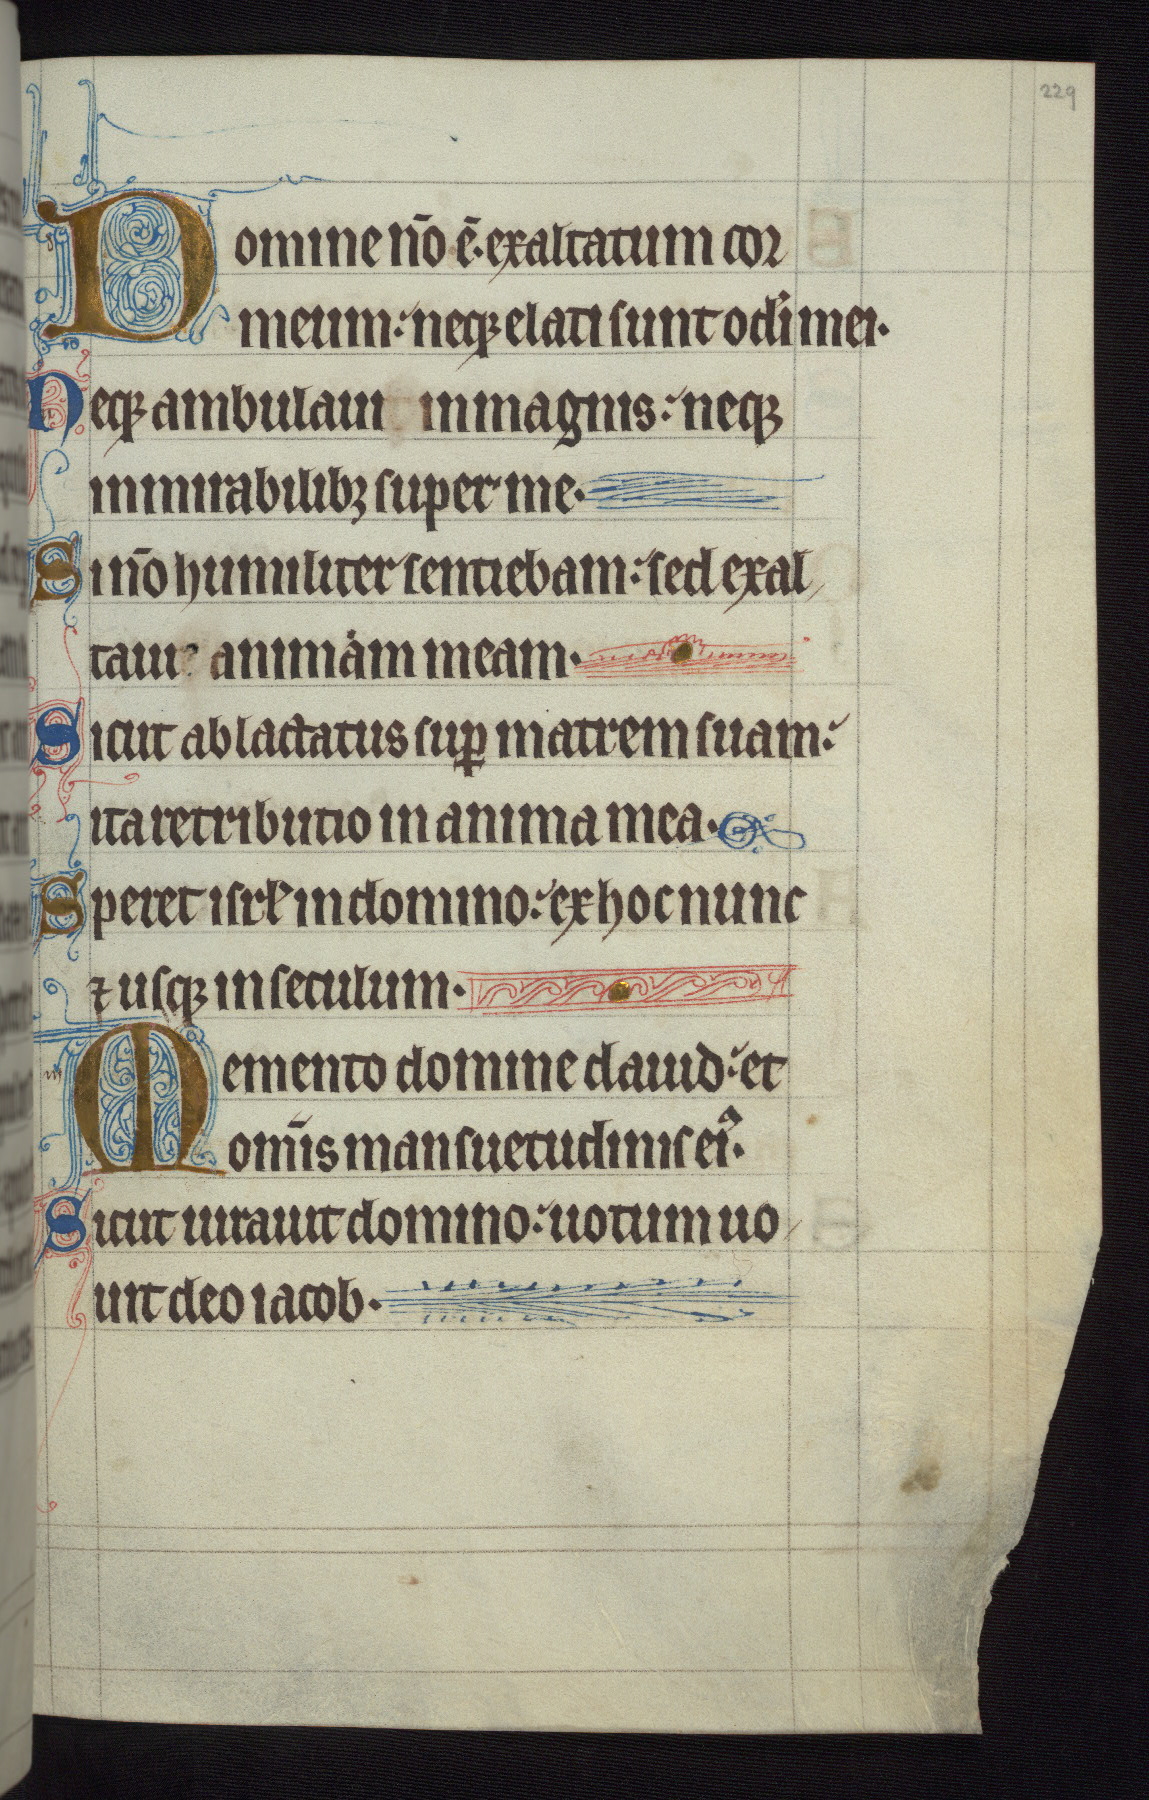 229
Domine nō ē· exaltatum cor
meum: neqꝫ elati sunt oc̄li mei·
Neqꝫ ambulaui in magnis: neqꝫ
in mirabilibꝫ super me·
Si nō humiliter sentiebam: sed exal
taui animam meam·
Sicut ablactatus suꝑ matrem suam:
ita retributio in anima mea·
Speret isrl̄ in domino: ex hoc nunc
⁊ usqꝫ in seculum·
Memento domine dauid: et
om̄is mansuetudinis eiꝰ·
Sicut iurauit domino: uotum uo
uit deo iacob·